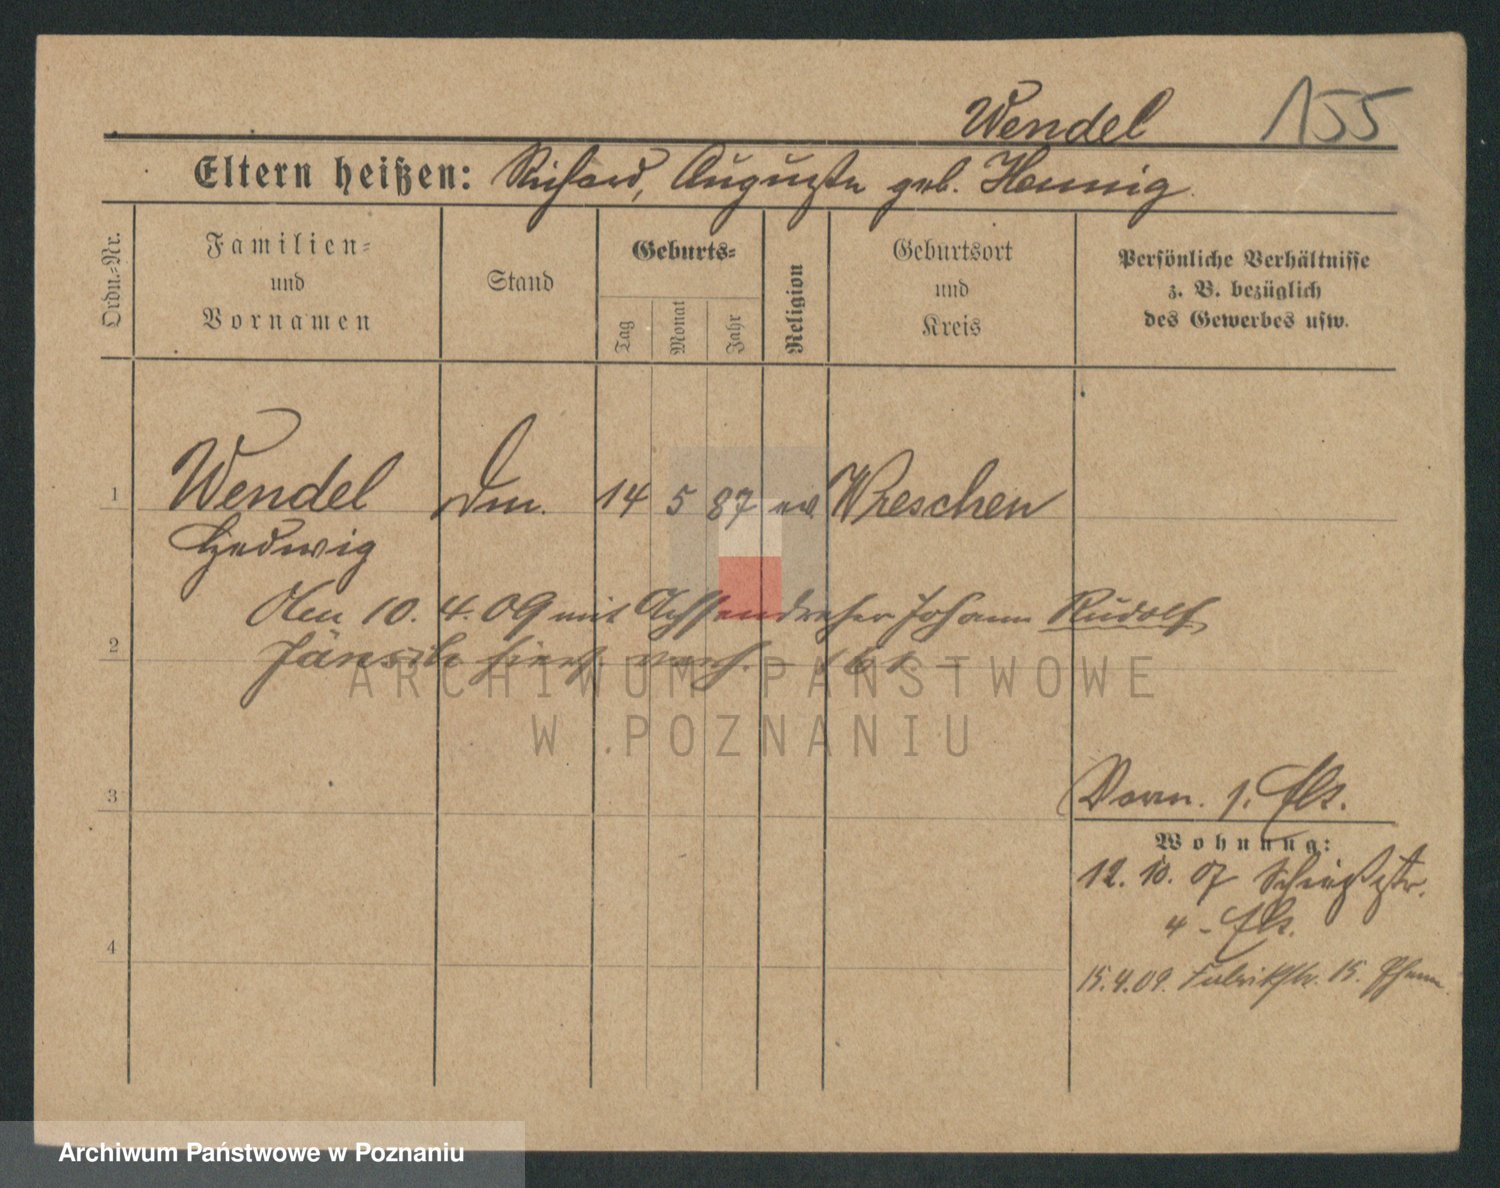 Wendel 155
Eltern heißen: Richard, Auguste geb. Hennig.
Ordn.-Nr.
Familien-
und
Vornamen
Stand
Geburts-
Tag
Monat
Jahr
Religion
Geburtsort
und
Kreis
Persönliche Verhältnisse
z. B. bezüglich
des Gewerbes usw.
1 Wendel 14 5 87 ev. Wreschen
Hedwig
Den 10. 4. 09 mit Achsendreher Johann Rudolf
2 Jänsch hier verh.
ARCHIWUM PAŃSTWOWE
W POZNANIU
3
Vorm. 1. Elt.
Wohnung:
12. 10. 07 Schießstr.
4 - Elt.
4
15.4.09. Fabrikstr. 15. Ehem.
Archiwum Państwowe w Poznaniu